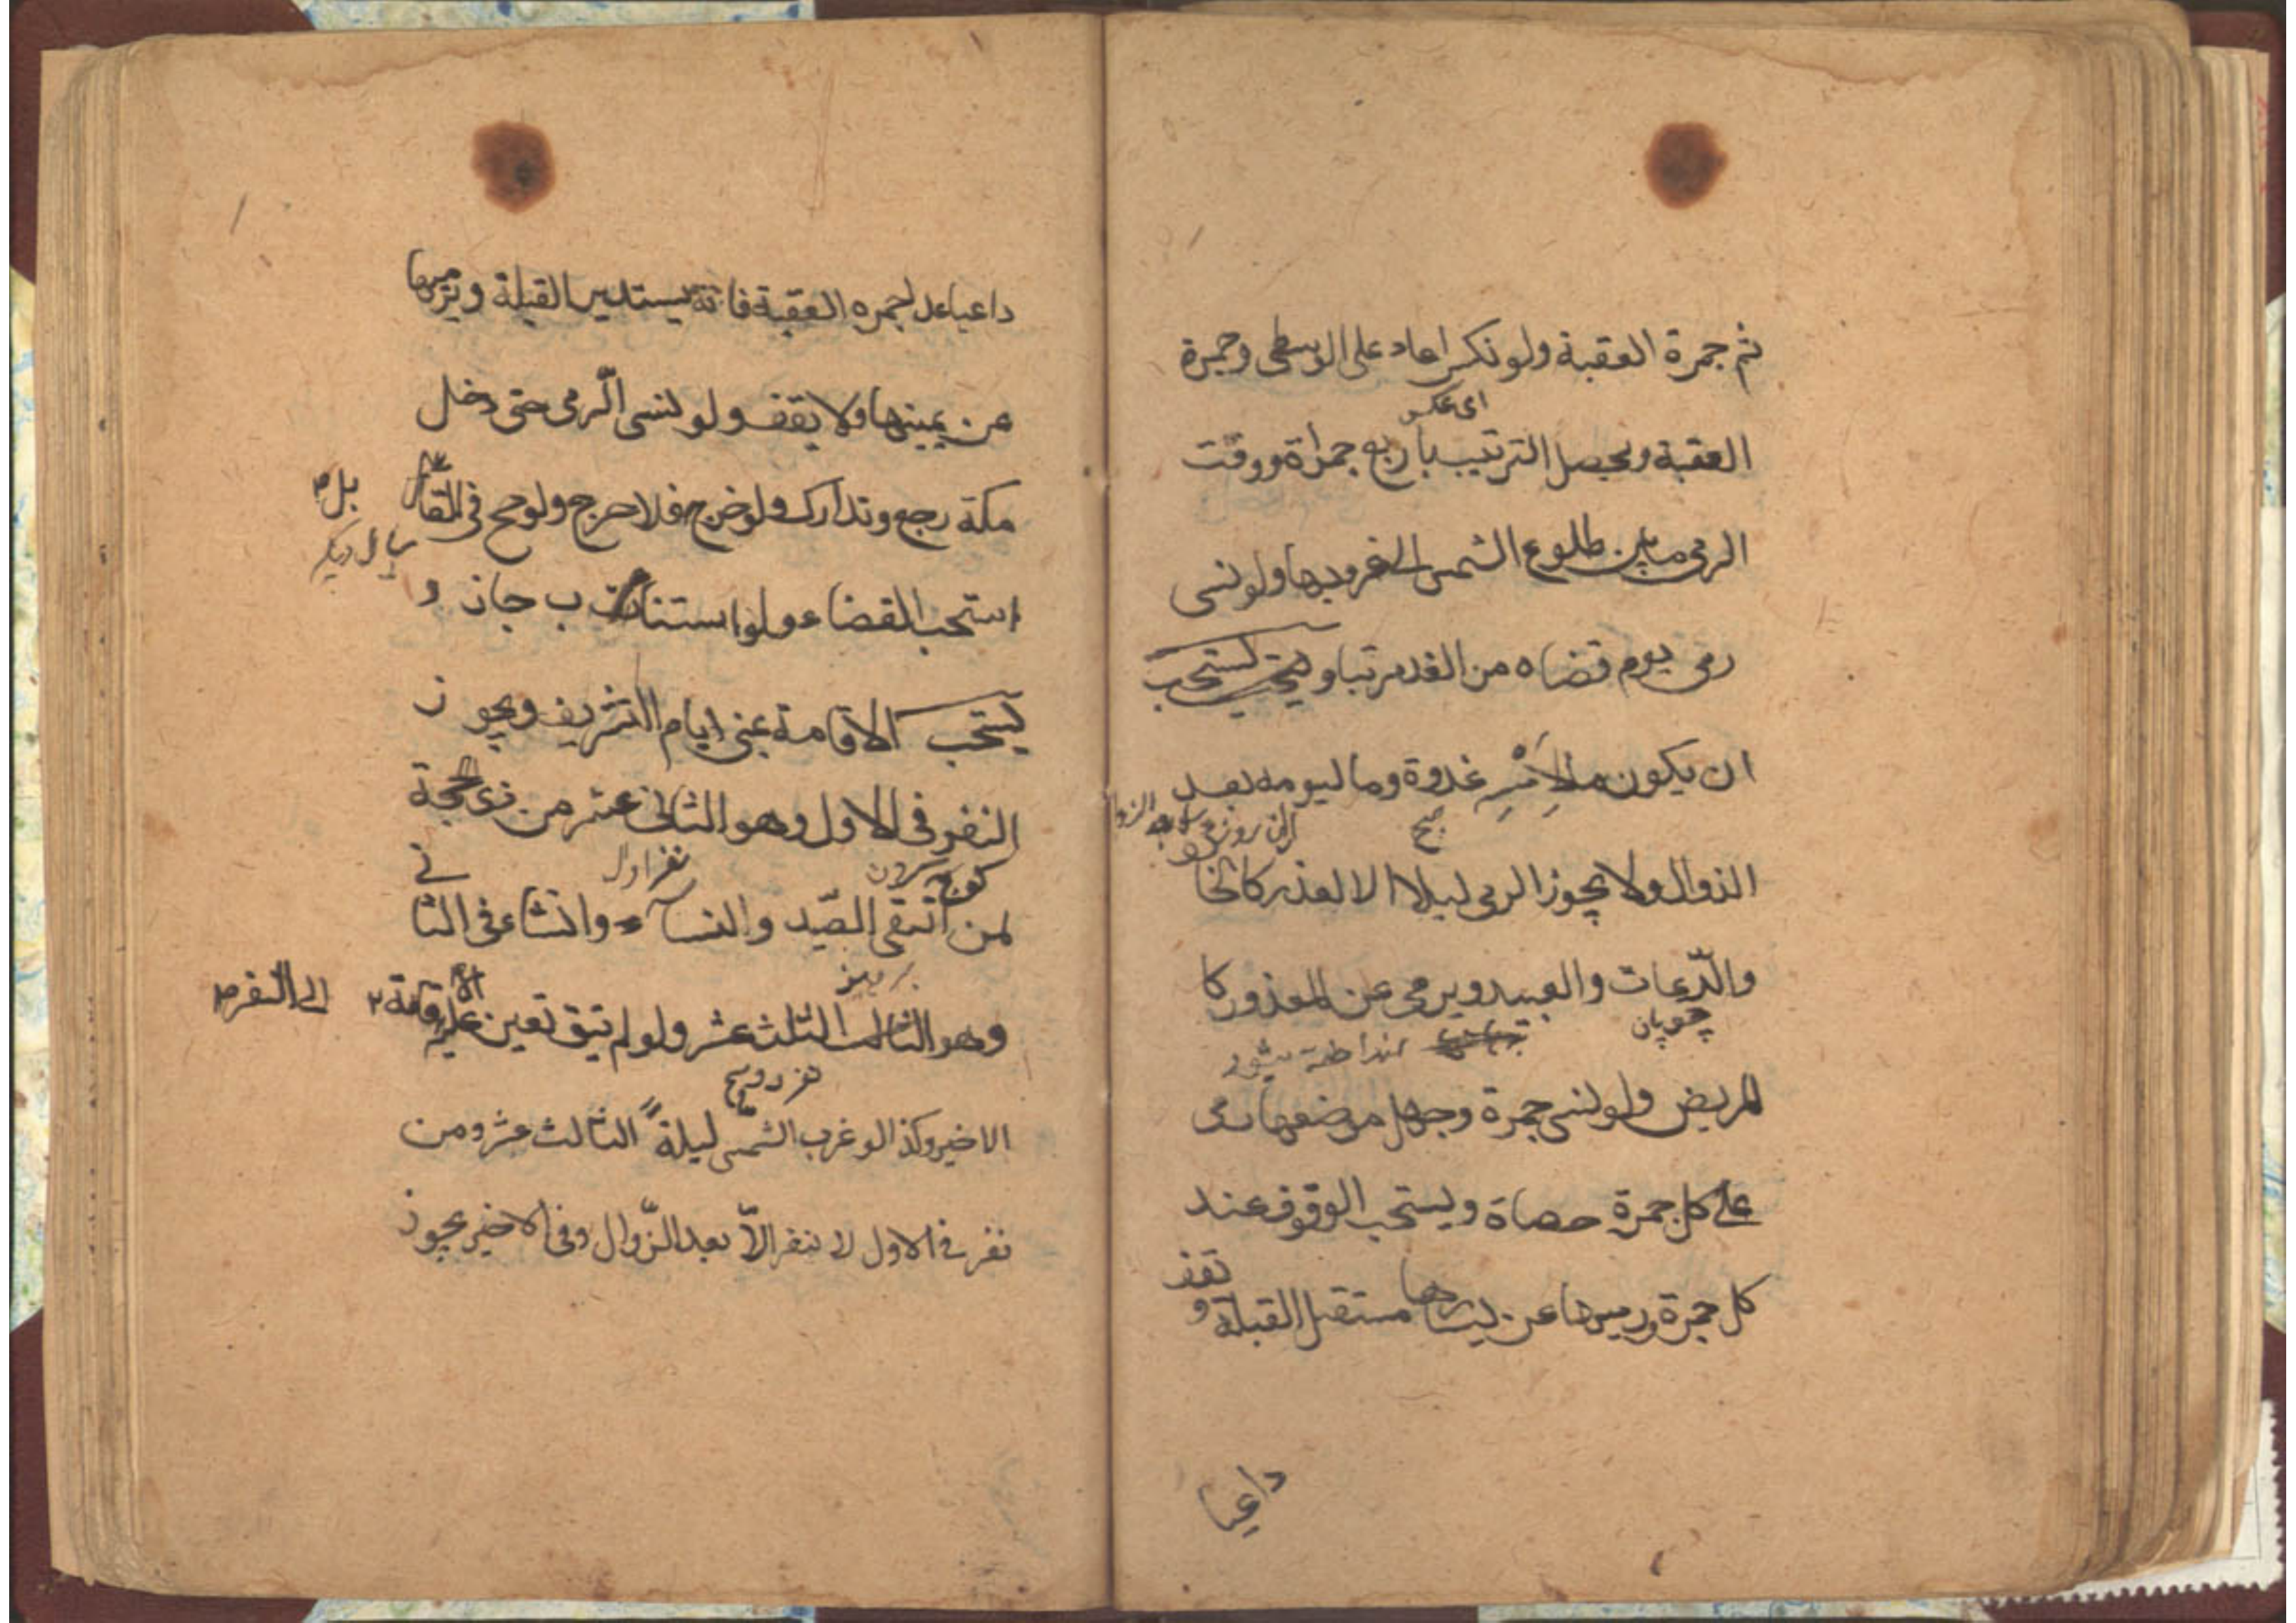 ثم جمرة العقبة ولو نكس اعاد على الوسطى وجمرة
اى عكس
العقبة ويحصل الترتيب باربع جمراة ووقت
الرمى ما بين طلوع الشمس الى غروبها ولو نسى
رمى يوم قضاه من الغد مرتبا و يستحب
ان يكون ما لِاَمْسِهِ غدوة وما ليومه بعد
صبح
الزوال ولا يجوز الرمى ليلا الا لعذر كالخا
والرّعات والعبيد ويرمى عن المعذور كا
چوپان
لمريض ولو نسى جمرة وجهل موضعها رمى
على كل جمرة حصاة ويستحب الوقوف عند
كل جمرة ورميها عن يسارها مستقبل القبلة و
تقف
داعيا
داعيا عدا جمره العقبة فانّه يستدبر القبلة ويرميها
عن يمينها ولا يقف ولو نسى الّرمى حتى دخل
مكة رجع وتدارك ولو خرج فلا حرج ولو حج فى القابل
سال ديكر
استحب القضاء ولو استناب جاز و
يستحب الاقامة بمنى ايام التشريف ويجوز
النفر فى الاول وهو الثانى عشر من ذى الحجة
كوچ كردن
نفر اول
لمن اتقى الصّيد والنسآء وانشاء فى الثا
نى
پرهيز
وهو الثالث عشر ولو لم تيق تعين عليه الاقامة
الى النفر
نفر دويم
الاخير وكذا لو غرب الشمس ليلة الثالث عشر ومن
نفر فى الاول لا ينفر الاّ بعد الزّوال وفى الاخير يجوز